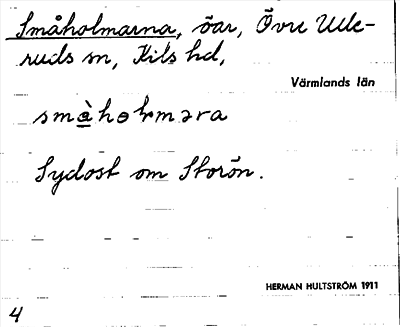 Småholmarna, öar, Övre Ulle-
ruds sn, Kils hd,
Värmlands län
Sydost om Storön.
HERMAN HULTSTRÖM 1911
4